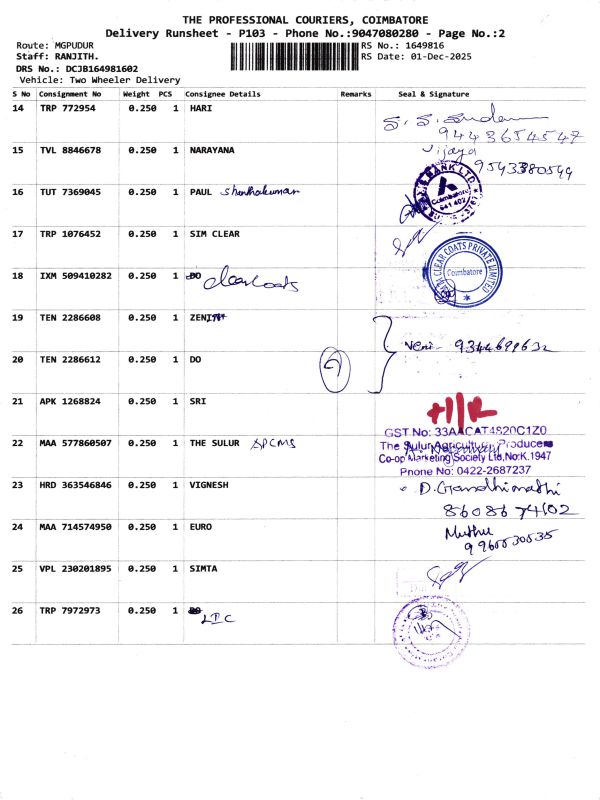 THE PROFESSIONAL COURIERS, COIMBATORE
Delivery Runsheet - P103 - Phone No.:9047080280 - Page No.:2
Route: MGPUDUR
RS No.: 1649816
Staff: RANJITH.
RS Date: 01-Dec-2025
DRS No.: DCJB164981602
Vehicle: Two Wheeler Delivery
S No Consignment No Weight PCS Consignee Details Remarks Seal & Signature
14 TRP 772954 0.250 1 HARI
9443654547
15 TVL 8846678 0.250 1 NARAYANA Vijaya
9543380544
16 TUT 7369045 0.250 1 PAUL
BANK LTD
Coimbatore
641 402
17 TRP 1076452 0.250 1 SIM CLEAR
CLEAR COATS PRIVATE LIMITED
Coimbatore
18 IXM 509410282 0.250 1 DO Clear Coats
19 TEN 2286608 0.250 1 ZENITH
Veni - 9344699632
20 TEN 2286612 0.250 1 DO
21 APK 1268824 0.250 1 SRI
GST No: 33AACAT4820C1Z0
22 MAA 577860507 0.250 1 THE SULUR APCMS The Sulur Agricultural Producers
Co-op Marketing Society Ltd,No:K.1947
Phone No: 0422-2687237
23 HRD 363546846 0.250 1 VIGNESH D. Gandhimathi
8608674102
24 MAA 714574950 0.250 1 EURO Muthu
9960030535
25 VPL 230201895 0.250 1 SIMTA
26 TRP 7972973 0.250 1 DO